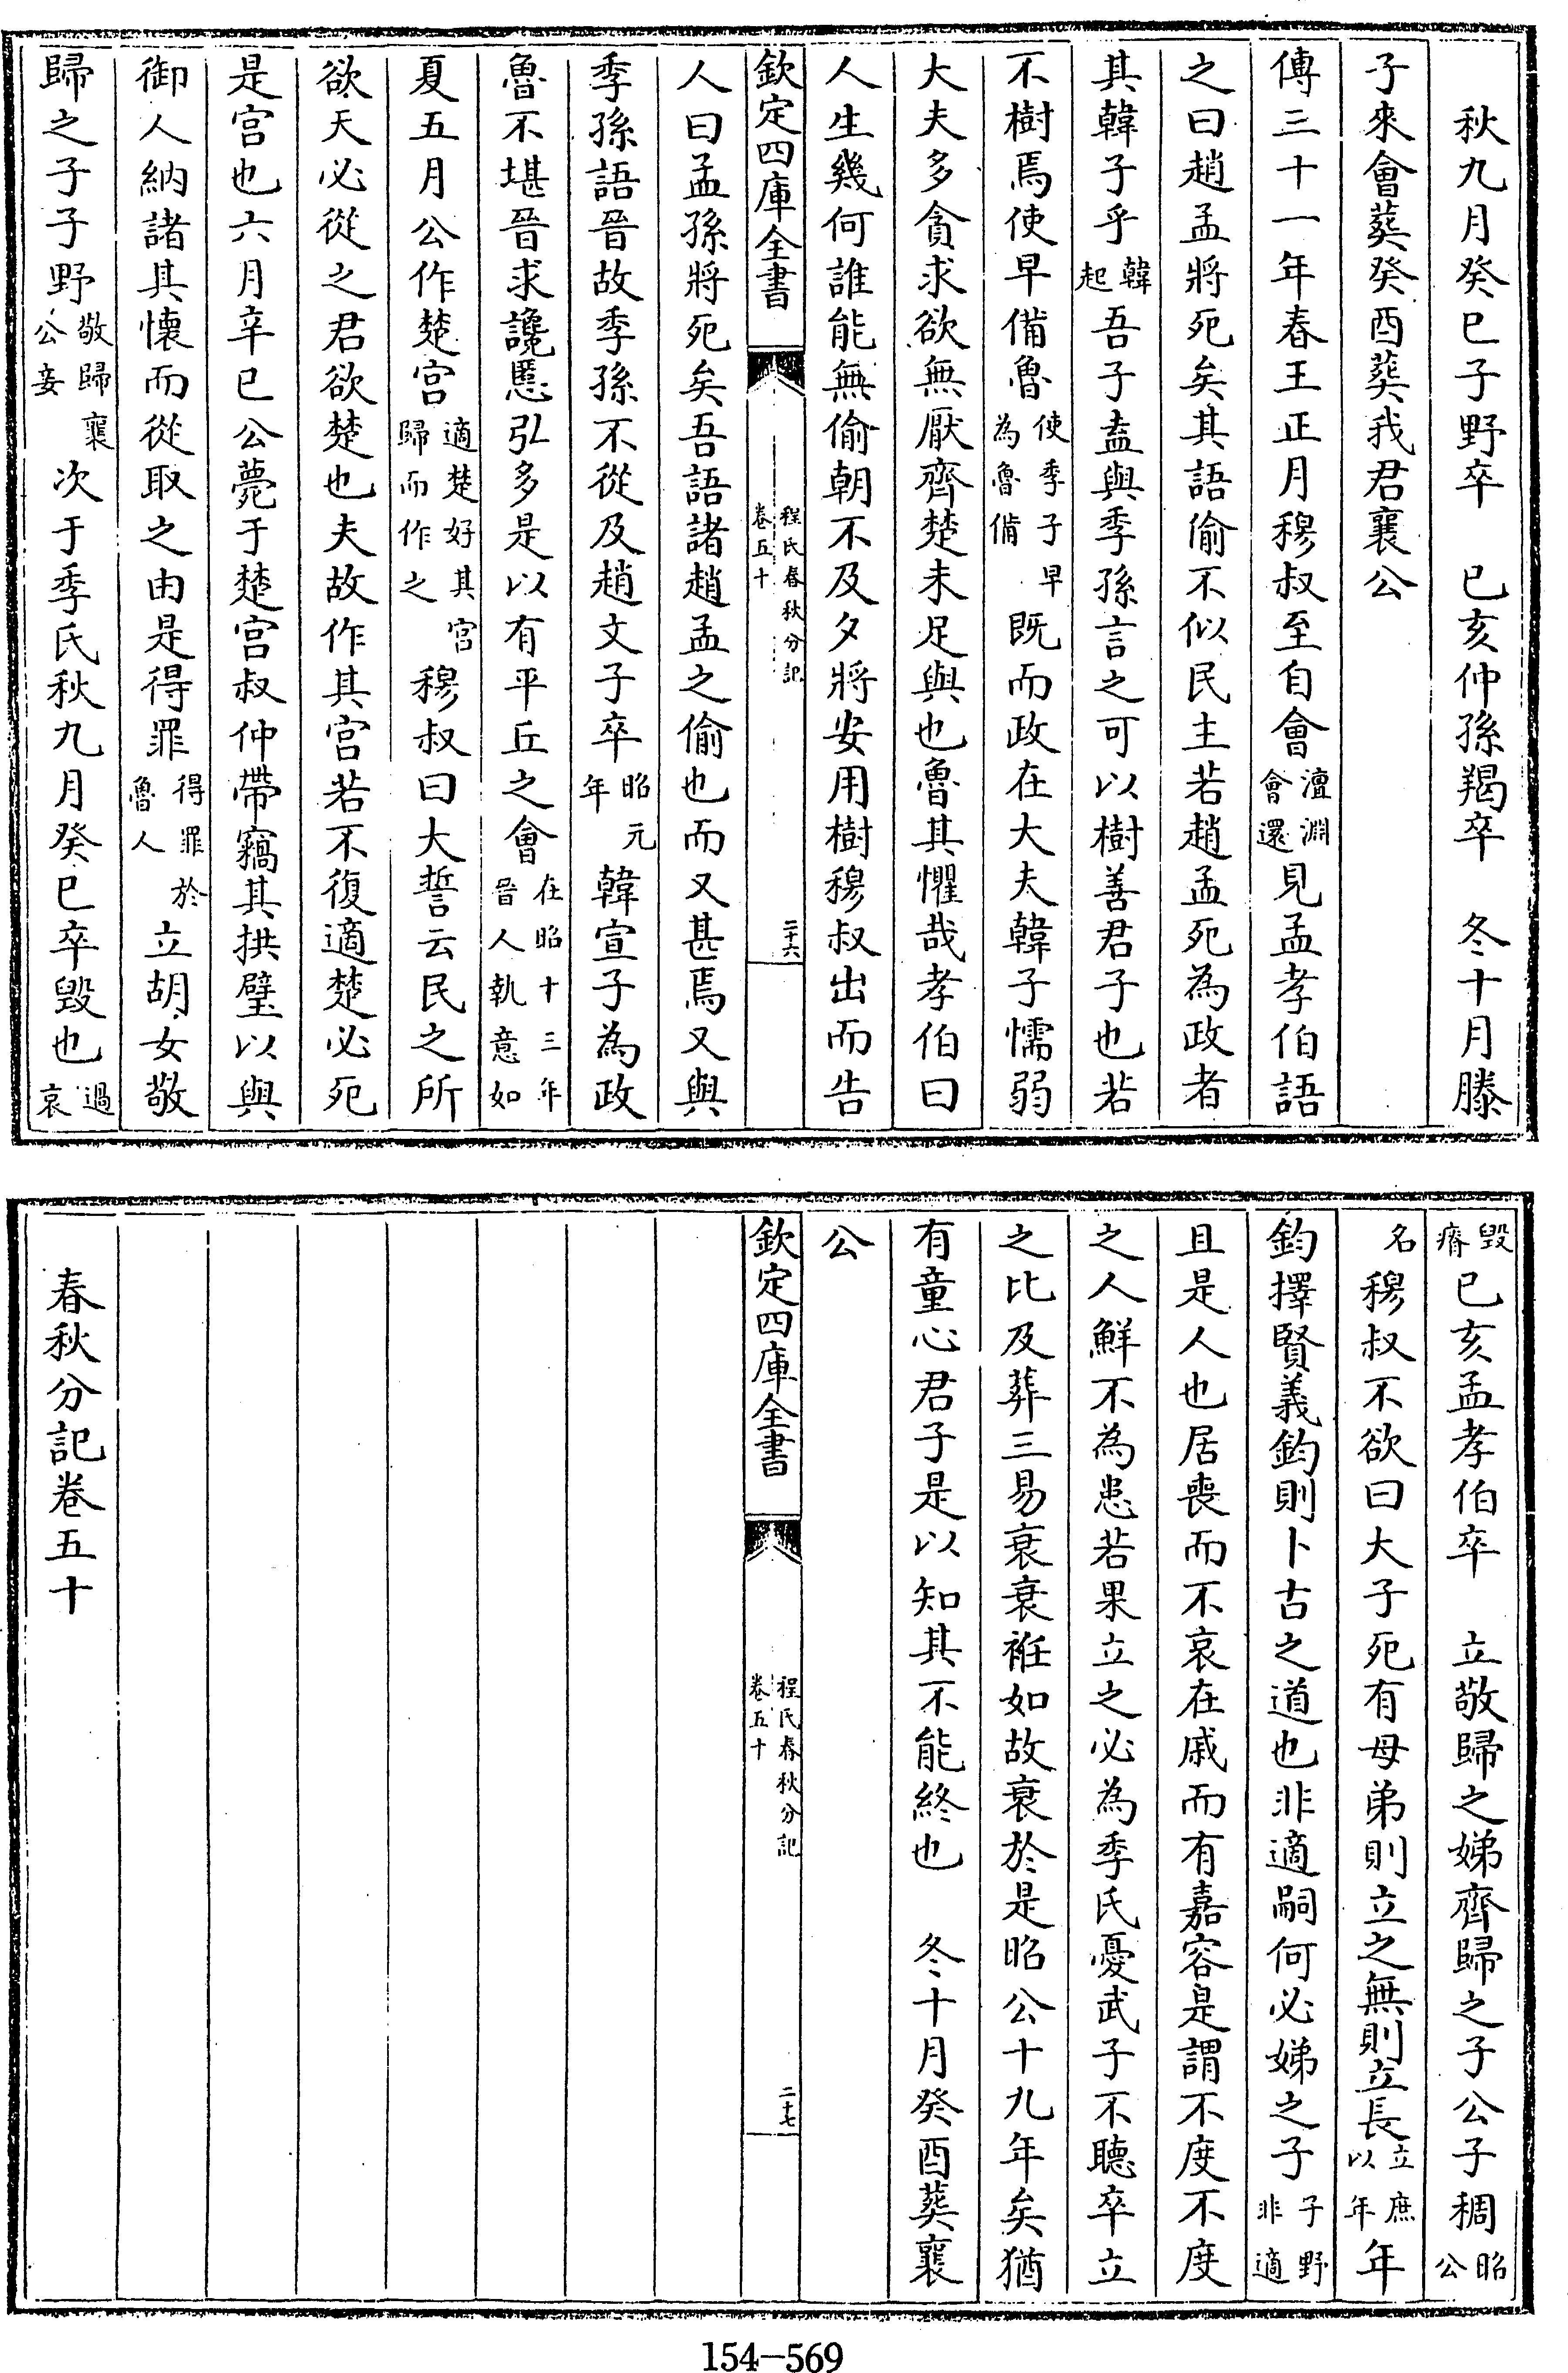 秋九月癸巳子野卒　已亥仲孫羯卒　冬十月滕
子來會葬癸酉葬我君襄公
傳三十一年春王正月穆叔至自會澶淵會還見孟孝伯語
之曰趙孟將死矣其語偷不似民主若趙孟死為政者
其韓子乎韓起吾子盍與季孫言之可以樹善君子也若
不樹焉使早備魯使季子早為魯備既而政在大夫韓子懦弱
大夫多貪求欲無厭齊楚未足與也魯其懼哉孝伯曰
人生幾何誰能無偷朝不及夕將安用樹穆叔出而告
欽定四庫全書
程氏春秋分記
卷五十
二十六
人曰孟孫將死矣吾語諸趙孟之偷也而又甚焉又與
季孫語晉故季孫不從及趙文子卒昭元年韓宣子為政
魯不堪晉求讒慝弘多是以有平丘之會在昭十三年晉人執意如
夏五月公作楚宮適楚好其宮歸而作之穆叔曰大誓云民之所
欲天必從之君欲楚也夫故作其宮若不復適楚必死
是宮也六月辛巳公薨于楚宮叔仲帶竊其拱璧以與
御人納諸其懷而從取之由是得罪得罪於魯人立胡女敬
歸之子子野敬歸襄公妾次于季氏秋九月癸巳卒毀也過哀
毀瘠已亥孟孝伯卒　立敬歸之娣齊歸之子公子稠昭公
名穆叔不欲曰大子死有母弟則立之無則立長立庶以年年
鈞擇賢義鈞則卜古之道也非適嗣何必娣之子子野非適
且是人也居喪而不哀在慼而有嘉容是謂不度不度
之人鮮不為患若果立之必為季氏憂武子不聽卒立
之比及葬三易衰衰衽如故衰於是昭公十九年矣猶
有童心君子是以知其不能終也　冬十月癸酉葬襄
公
欽定四庫全書
程氏春秋分記
卷五十
二十七
春秋分記卷五十
154-569